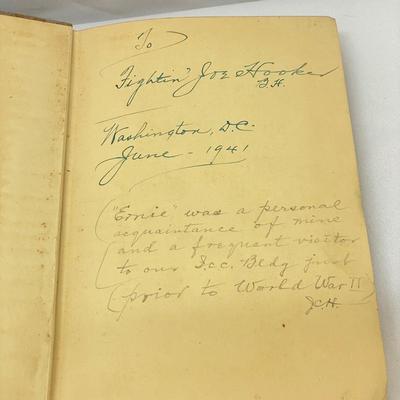 To
Fightin' Joe Hooker
J.H.
Washington, D.C.
June - 1941
("Ernie" was a personal
acquaintance of mine
and a frequent visitor
to our I.c.c. Bldg just
prior to World War II)
J.C.H.